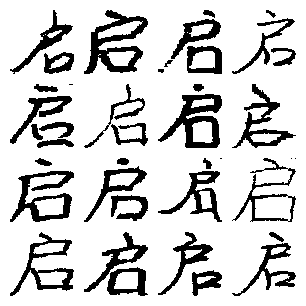 启启启启
启启启启
启启启启
启启启启